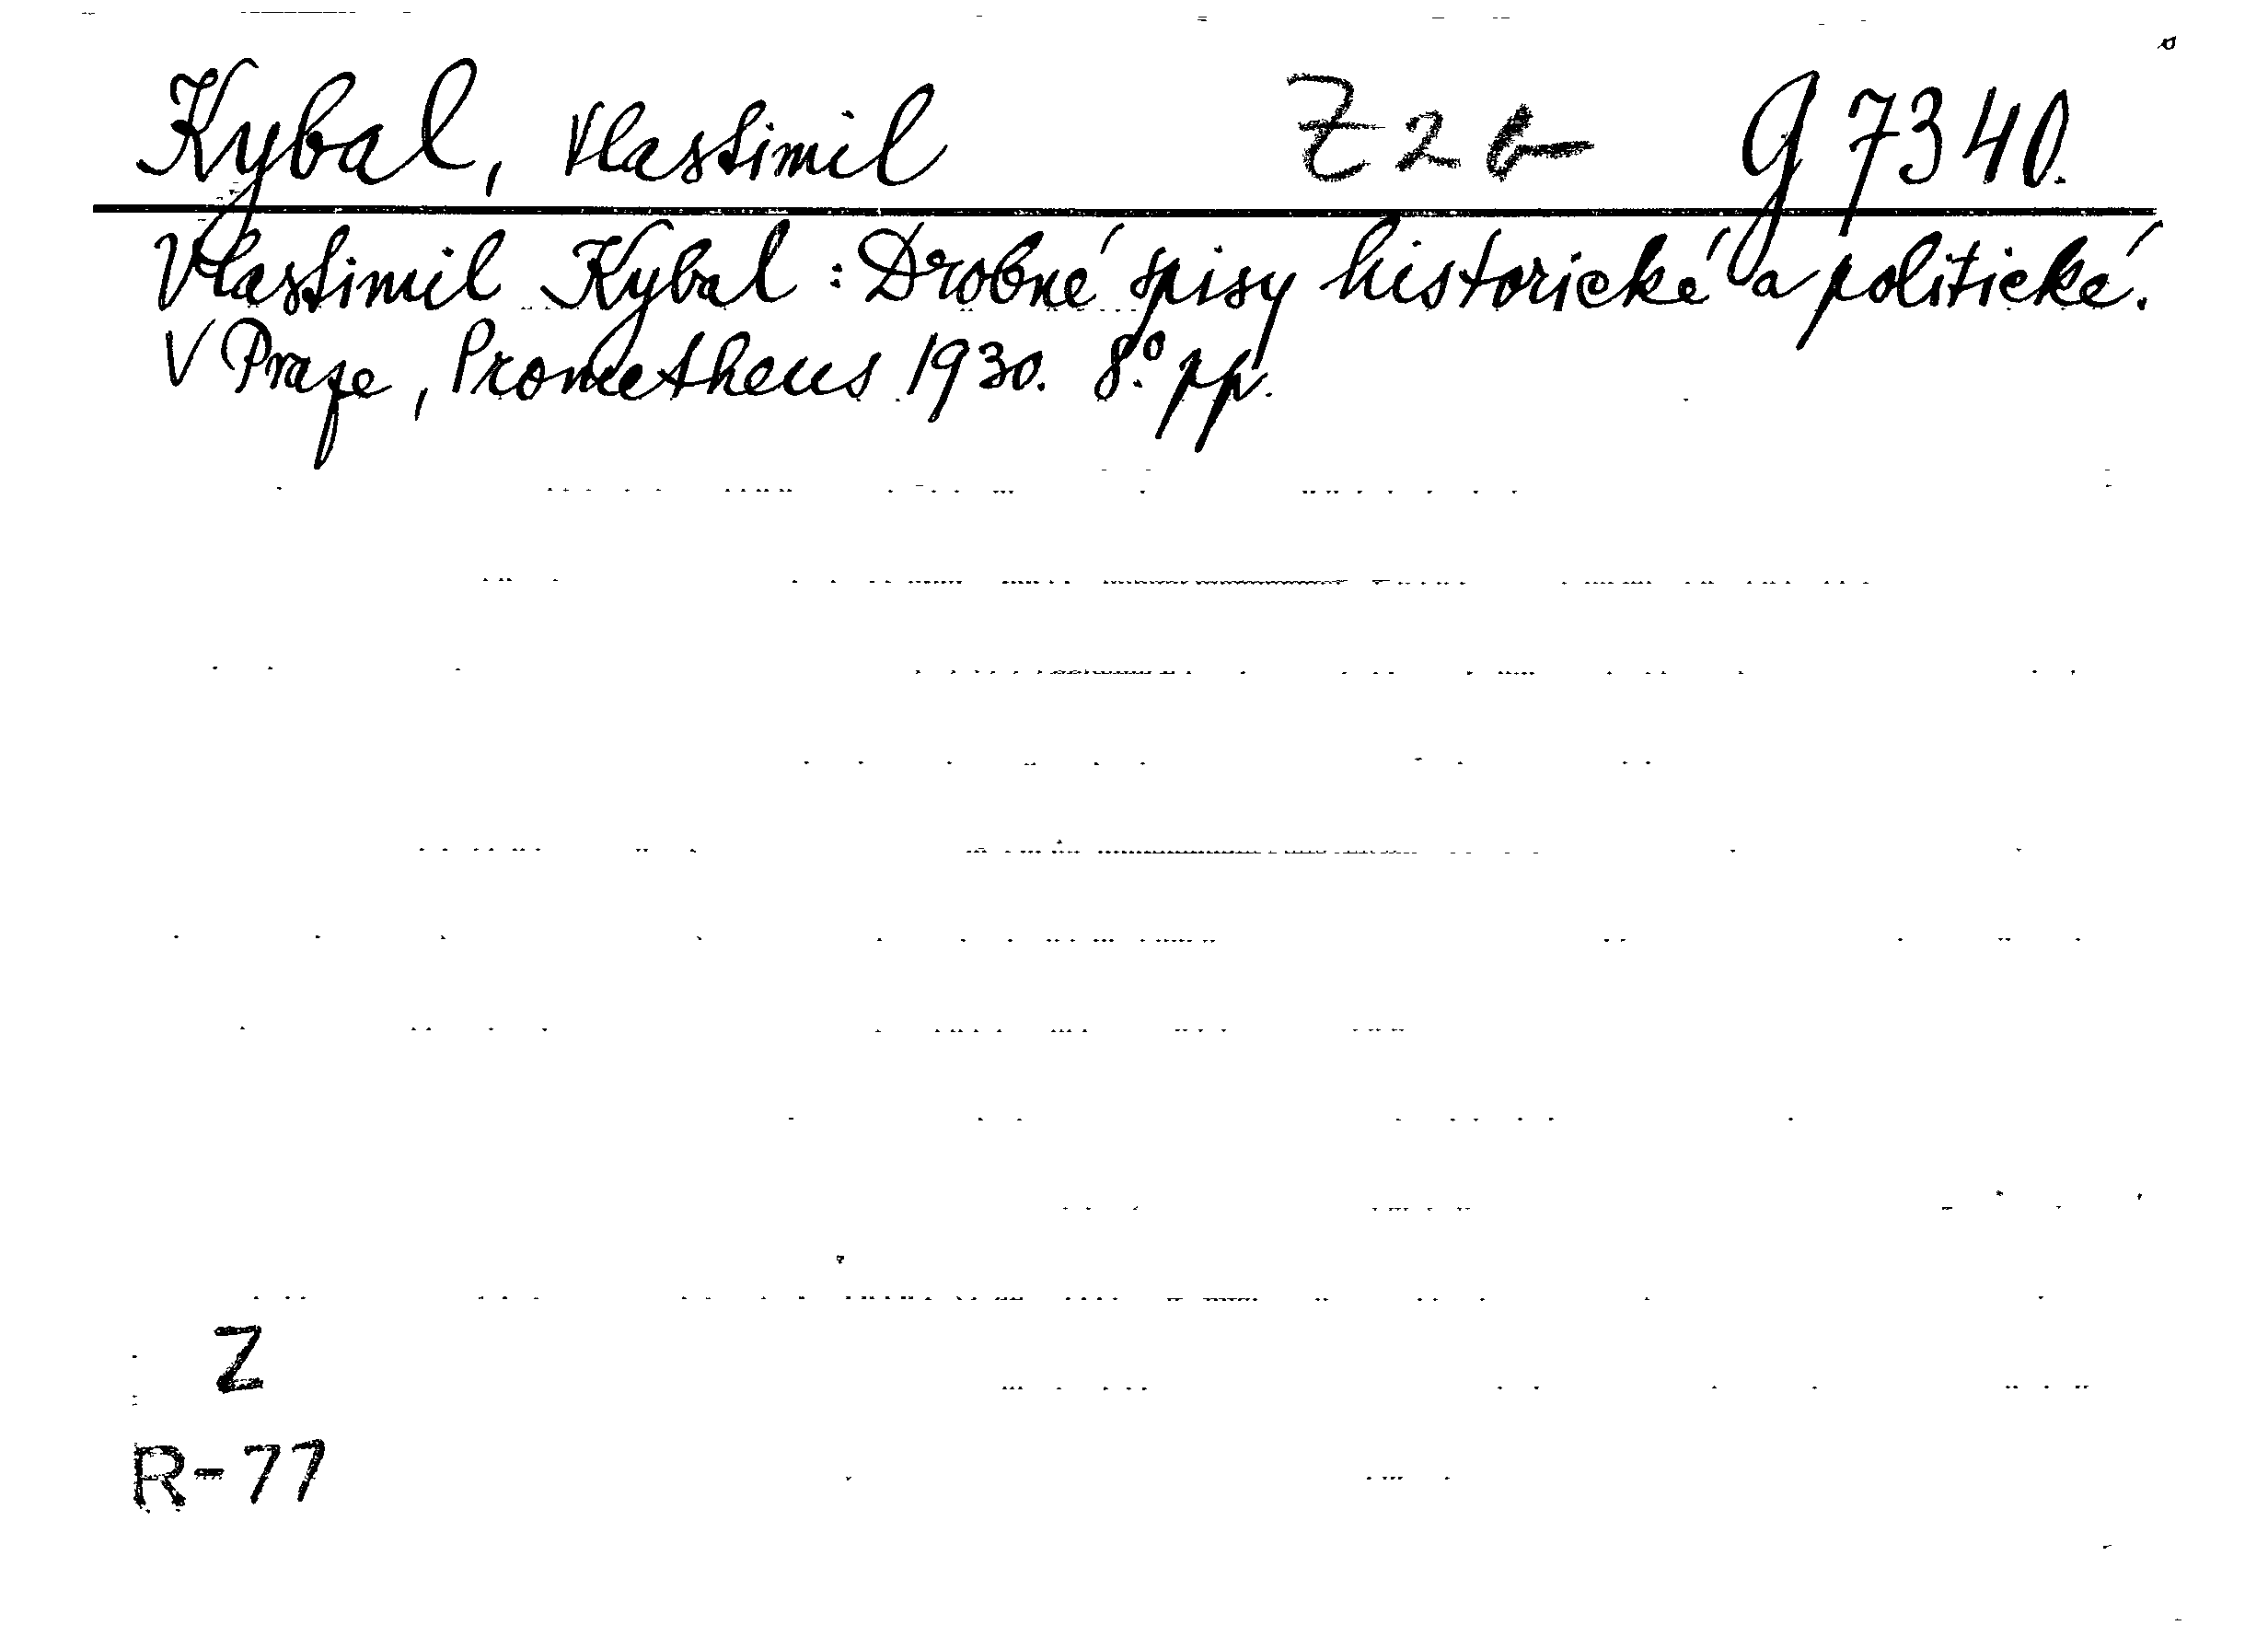 Kybal, Vlastimil Z 2 b G 7340.
Vlastimil Kybal: Drobné spisy historické a politické.
V Praze, Prometheus 1930. 8.° pp.
Z
R-77